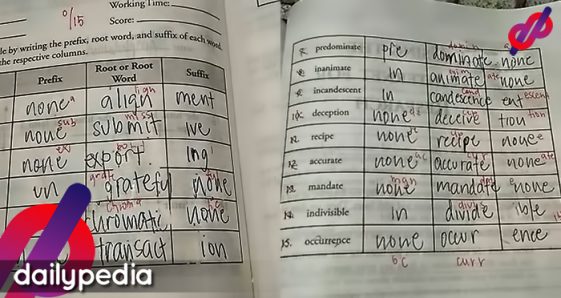 Working Time:
0/15
Score:
le by writing the prefix, root word, and suffix of each word
the respective columns.
Prefix Root or Root Word Suffix
none a align lign ment
none sub submit miss ive
none ex export ing
un grateful grate none
chromatic chroma none tic
transact ion
7. predominate pre dominate domin none
8. inanimate in animate anim none ate
9. incandescent in candescence cand ent escent
10. deception none de deceive tion
11. recipe none recipe none e
12. accurate none ac accurate cur none ate
13. mandate none man mandate none
14. indivisible in divide ible
15. occurrence none occur ence
oc curr
dailypedia